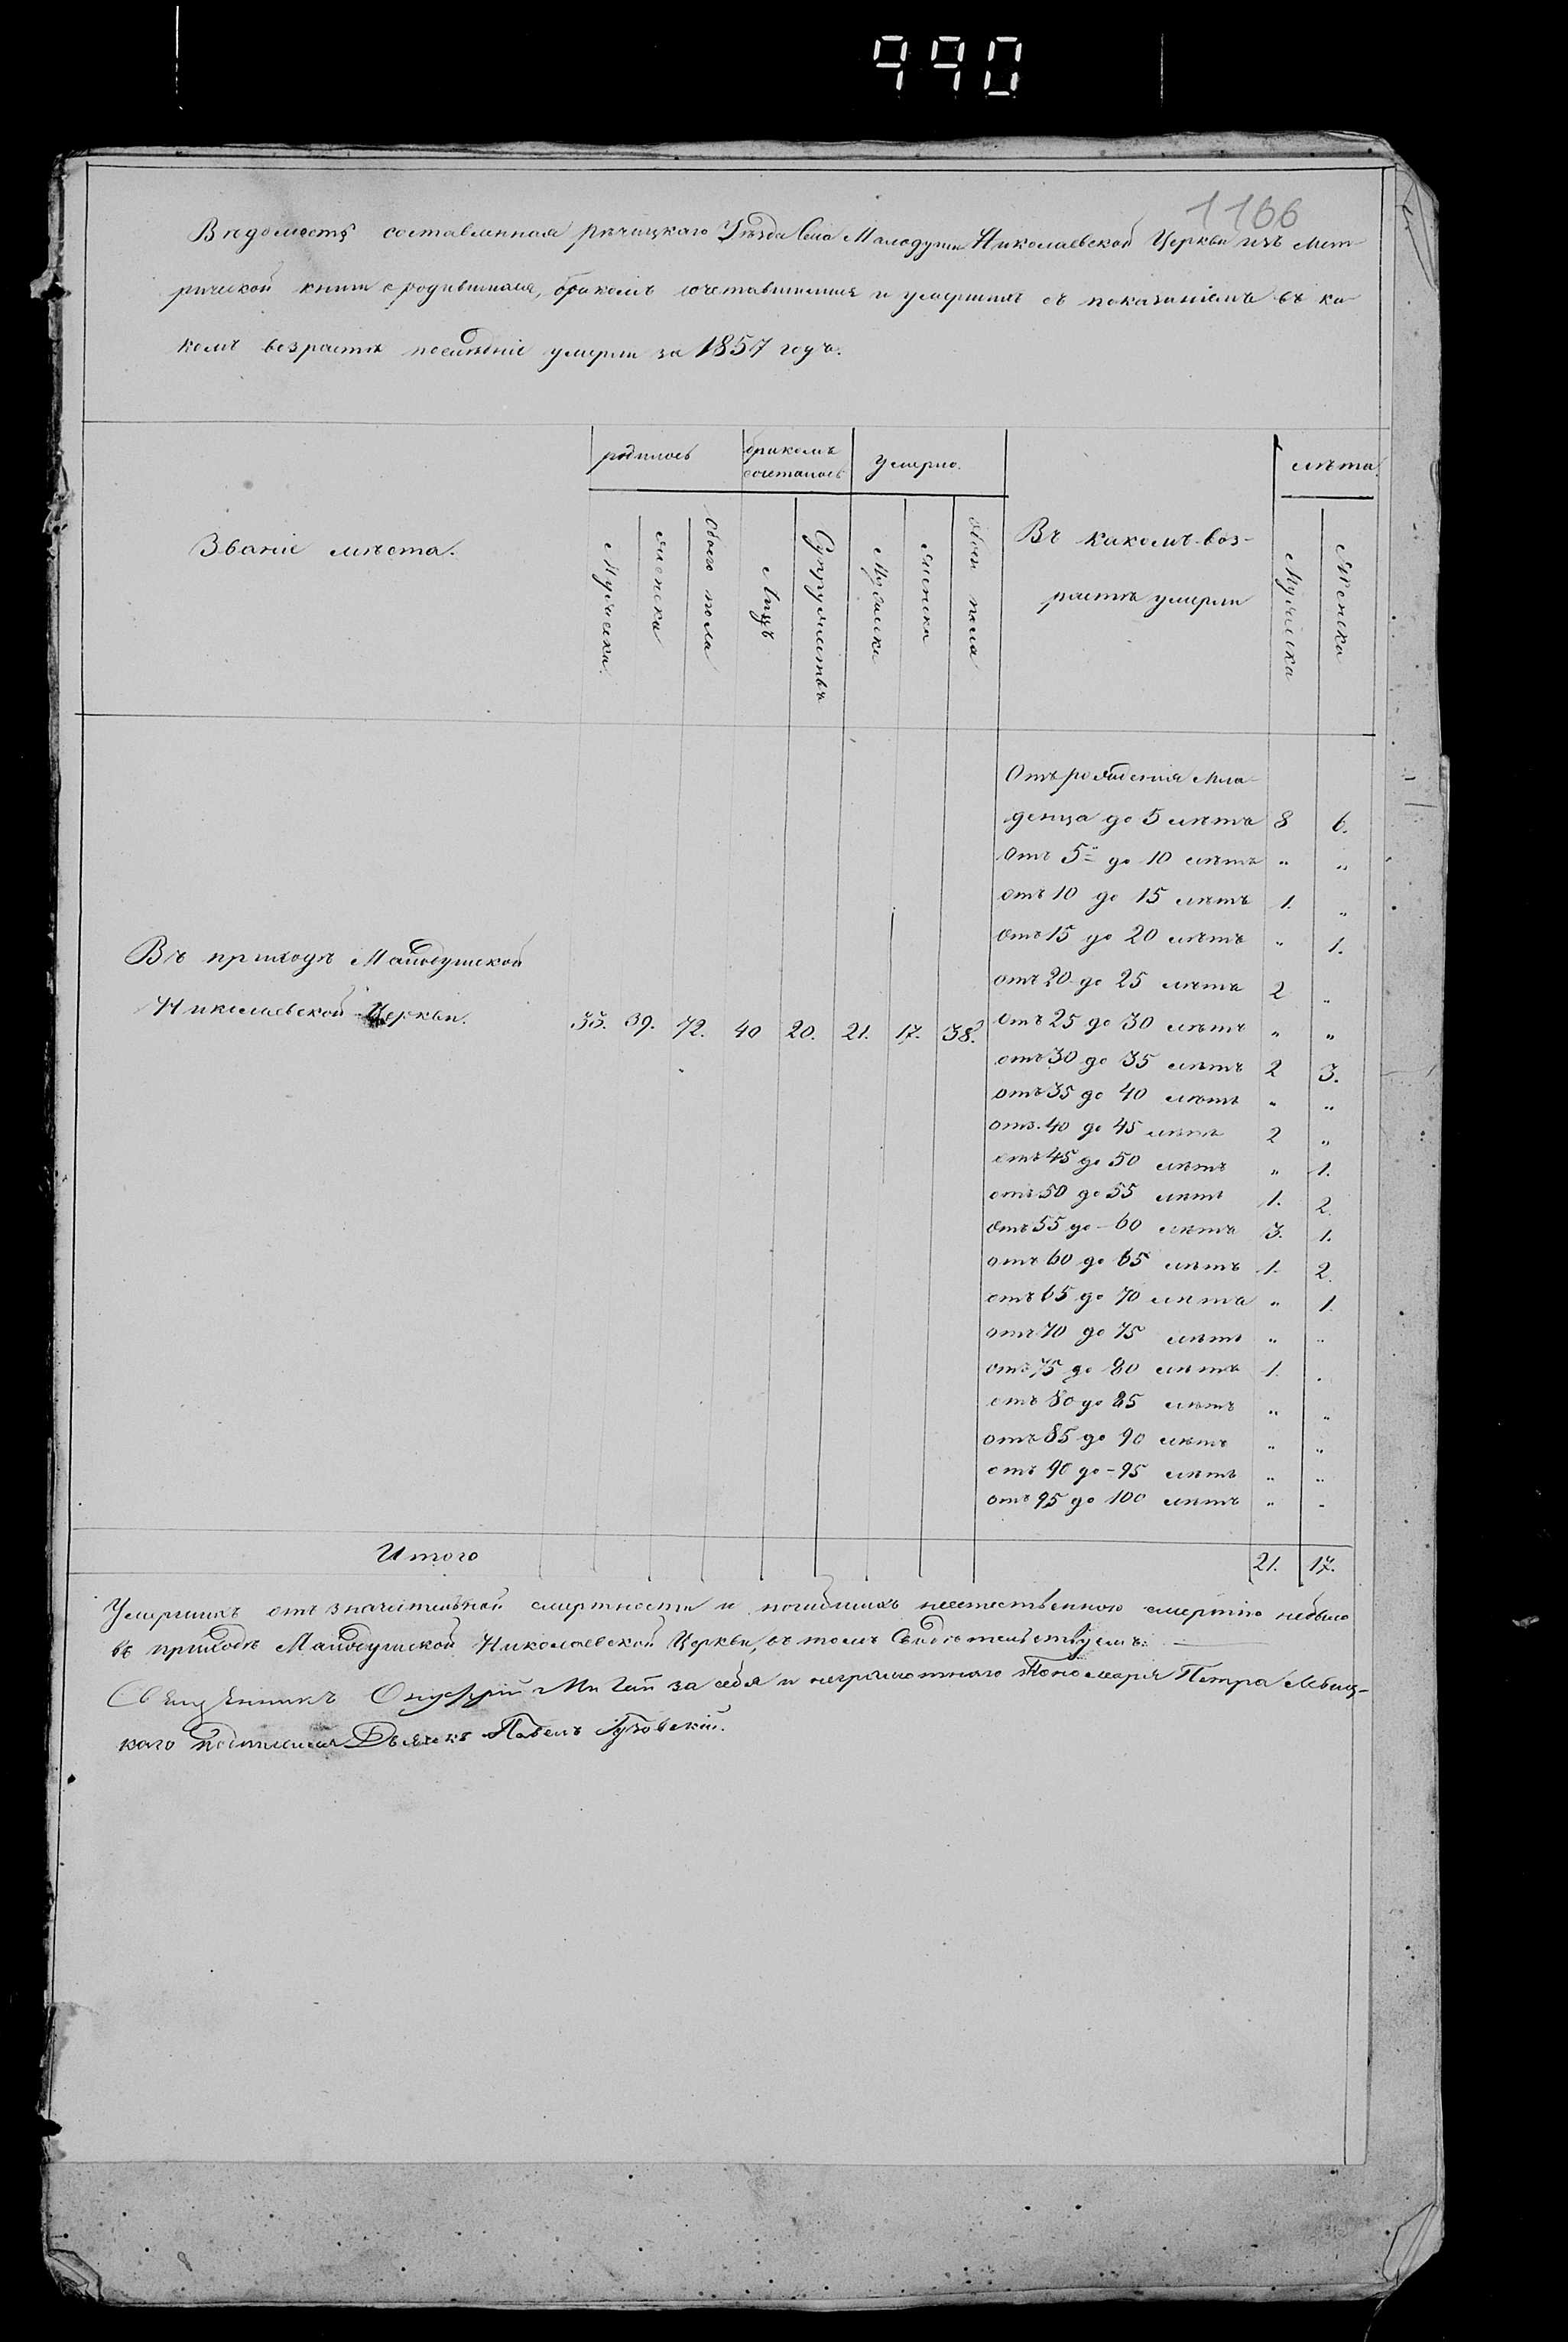 990
1166
Вѣдомость составленная рѣчицкаго Уѣзда Села Малодуши Николаевской Церкви изъ Мет-
рической книги о родившихся, бракомъ сочетавшихся и умершихъ съ показаніемъ въ ка-
комъ возрастѣ послѣдніе умерли за 1857 годъ.
Званіе мѣста.
родилось
бракомъ
сочеталось
умерло.
Въ какомъ воз-
растѣ умерли
лѣта.
Мужеска.
женска
Обоего пола
Лицъ
Супружествъ
Мужеска
женска
обоего пола
Мужеска
Женска
Отъ рожденія мла-
денца до 5 лѣтъ 8 6.
отъ 5 до 10 лѣтъ " "
отъ 10 до 15 лѣтъ 1. "
отъ 15 до 20 лѣтъ " 1.
отъ 20 до 25 лѣтъ 2 "
Въ приходѣ Малодушской
Николаевской Церкви. 33. 39. 72. 40 20. 21. 17. 38.
отъ 25 до 30 лѣтъ " "
отъ 30 до 35 лѣтъ 2 3.
отъ 35 до 40 лѣтъ " "
отъ 40 до 45 лѣтъ 2 "
отъ 45 до 50 лѣтъ " 1.
отъ 50 до 55 лѣтъ 1. 2.
отъ 55 до 60 лѣтъ 3. 1.
отъ 60 до 65 лѣтъ 1. 2.
отъ 65 до 70 лѣтъ " 1.
отъ 70 до 75 лѣтъ " "
отъ 75 до 80 лѣтъ 1. "
отъ 80 до 85 лѣтъ " "
отъ 85 до 90 лѣтъ " "
отъ 90 до 95 лѣтъ " "
отъ 95 до 100 лѣтъ " "
Итого 21. 17.
Умершихъ отъ значительной смертности и погибшихъ неестественною смертію небыло
въ приходѣ Малодушской Николаевской Церкви, въ томъ Свидѣтельствуемъ: —
Священникъ Онуфрій за себя и неграмотнаго Пономаря Петра Левиц-
каго подписался Дьячекъ Павелъ